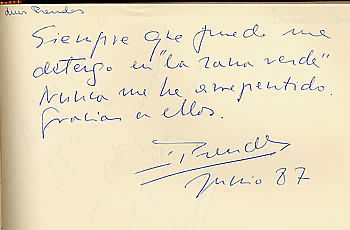 Luis Prendes
Siempre que puedo me
detengo en "la rana verde"
Nunca me he arrepentido.
Gracias a ellos.
LPrendes
Junio 87